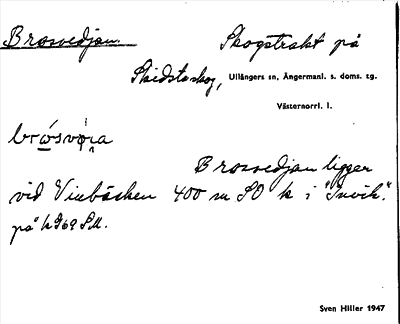 Brosvedjan. Skogstrakt på
Skidstaskog, Ullångers sn, Ångermanl. s. doms. tg.
Västernorrl. l.
Brosvedjan ligger
vid Vinbäcken 400 m SO k i "Invik".
på k I69 SU.
Sven Hiller 1947